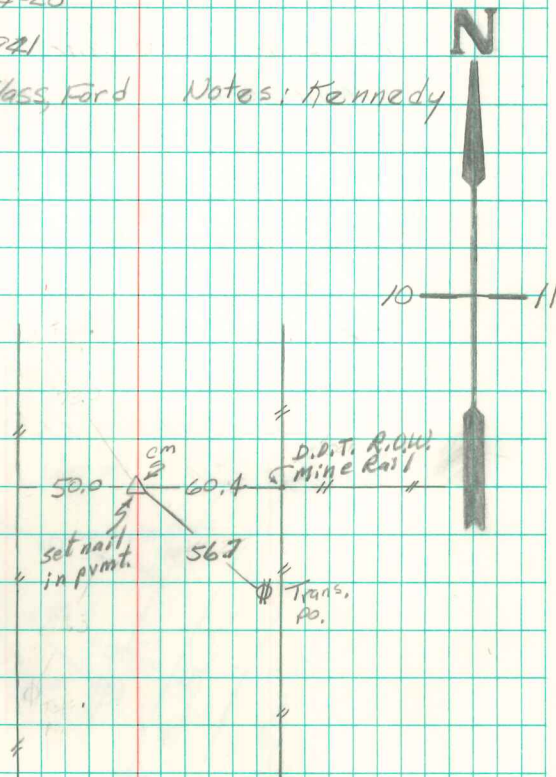 241
Ford Notes: Kennedy
N
10 11
cm
D.D.T. R.O.W.
Mine Rail
50.0 60.4
set nail
in pvmt.
56.7
Trans.
po.